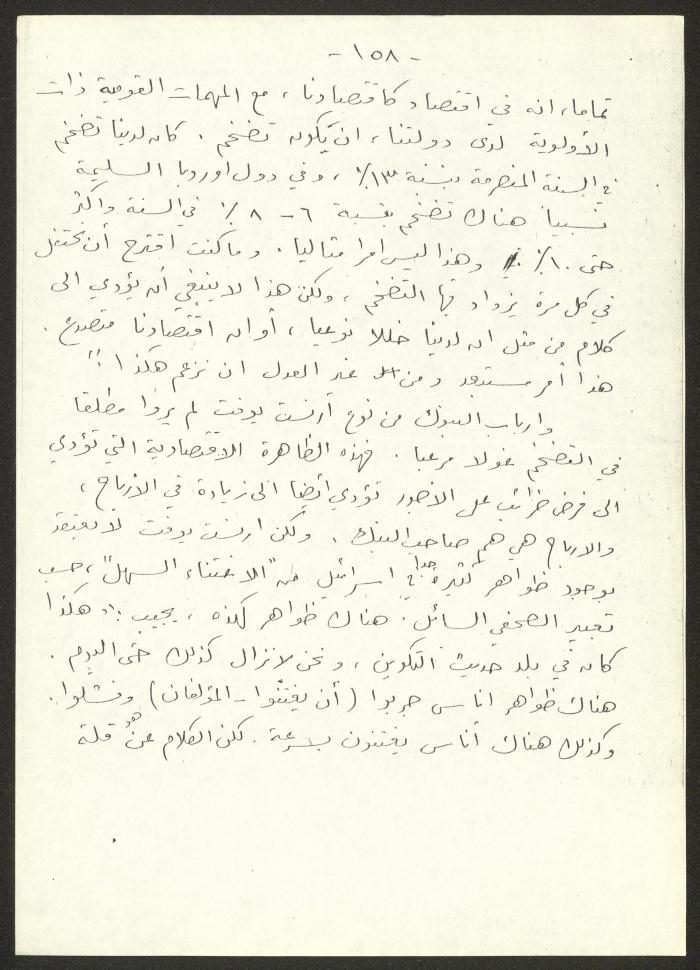 - ١٥٨ -
تماما، انه في اقتصاد كاقتصادنا، مع المهمات القومية ذات
الأولوية لدى دولتنا، ان يكون تضخم. كان لدينا تضخم
في السنة المنصرمة بنسبة ١٣٪، وفي دول اوروبا السليمة
نسبيا هناك تضخم بنسبة ٦-٨٪ في السنة واكثر
حتى ١٠٪. وهذا ليس امرا مثاليا. وما كنت اقترح أن نحتفل
في كل مرة يزداد فيها التضخم، ولكن هذا لا ينبغي أن يؤدي الى
كلام من مثل ان لدينا خللا نوعيا، أو ان اقتصادنا متصدع.
هذا أمر مستبعد ومن غير العدل ان نزعم هكذا!"
وارباب البنوك من نوع أرنست يوفت لم يروا مطلقا
في التضخم غولا مرعبا. فهذه الظاهرة الاقتصادية التي تؤدي
الى فرض ضرائب على الاجور تؤدي ايضا الى زيادة في الارباح،
والارباح هي هم صاحب البنك. ولكن ارنست يوفت لا يعتقد
بوجود ظواهر كثيرة جدا في اسرائيل من "الاغتناء السهل"، حسب
تعبير الصحفي السائل. هناك ظواهر كهذه، يجيب: "هكذا
كان في بلد حديث التكوين، ونحن لا نزال كذلك حتى اليوم.
هناك ظواهر اناس جربوا (أن يغتنوا - المؤلفان) وفشلوا.
وكذلك هناك أناس يغتنون بسرعة. لكن الكلام هو عن قلة